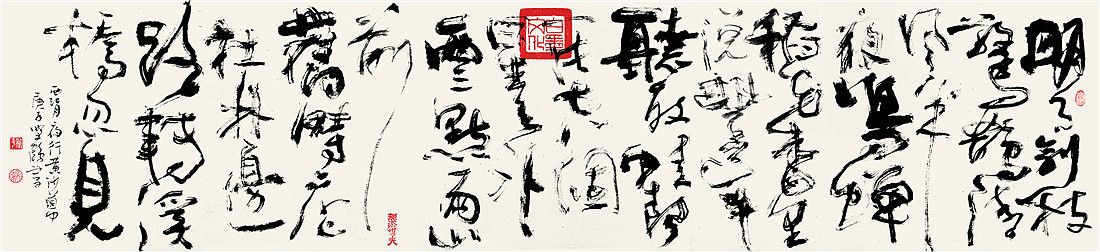 明月别枝
惊鹊清
风半
夜鸣蝉
稻花香里
说丰年
听取蛙声
一片七八个
星天外
两三点雨山
前
旧时茅店
社林边
路转溪
桥忽见
西江月夜行黄沙道中